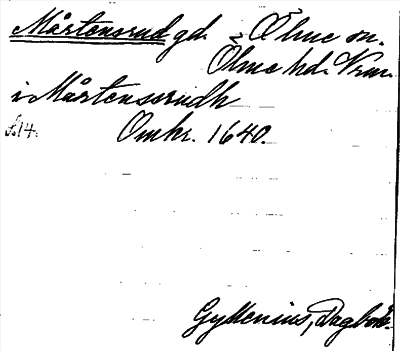 Mårtensrud gd. Ölme sn.
Ölme hd. Vrm.
i Mårtenssrudh
s. 14. Omkr. 1640.
Gyllenius, Dagbok.